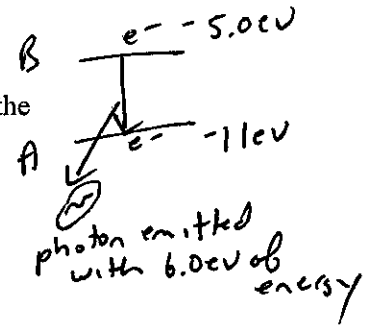 B e- -5.0eV
the
A e- -11eV
photon emitted
with 6.0eV of
energy